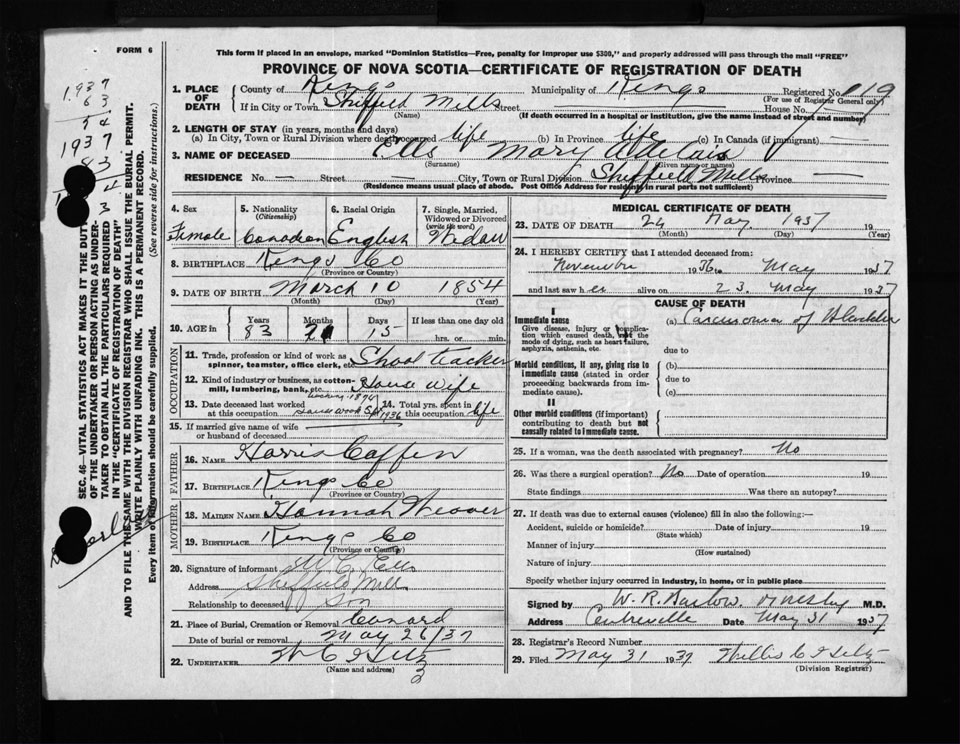 FORM 6
This form if placed in an envelope, marked "Dominion Statistics—Free, penalty for improper use $300," and properly addressed will pass through the mail "FREE"
PROVINCE OF NOVA SCOTIA—CERTIFICATE OF REGISTRATION OF DEATH
1. PLACE OF DEATH County of Kings Municipality of Kings Registered No. 119
(For use of Registrar General only)
If in City or Town Sheffield Mills Street House No.
(Name) (If death occurred in a hospital or institution, give the name instead of street and number)
2. LENGTH OF STAY (in years, months and days)
(a) In City, Town or Rural Division where death occurred life (b) In Province life (c) In Canada (if immigrant)
3. NAME OF DECEASED Ells Mary
(Surname) (Given name or names)
RESIDENCE No. — Street — City, Town or Rural Division Sheffield Mills Province —
(Residence means usual place of abode. Post Office Address for residents in rural parts not sufficient)
4. Sex Female
5. Nationality (Citizenship) Canadian
6. Racial Origin English
7. Single, Married, Widowed or Divorced (write the word) Widow
8. BIRTHPLACE Kings Co
(Province or Country)
9. DATE OF BIRTH March 10 1854
(Month) (Day) (Year)
10. AGE in Years 83 Months 2 Days 15 If less than one day old hrs. or min.
OCCUPATION
11. Trade, profession or kind of work as spinner, teamster, office clerk, etc. Shool teacher
12. Kind of industry or business, as cotton-mill, lumbering, bank, etc. House wife
13. Date deceased last worked at this occupation teaching 1876 housework 1936
14. Total yrs. spent in this occupation life
15. If married give name of wife or husband of deceased
FATHER
16. NAME Harris Coffen
17. BIRTHPLACE Kings Co
(Province or Country)
MOTHER
18. MAIDEN NAME Hannah Weaver
19. BIRTHPLACE Kings Co
(Province or Country)
20. Signature of informant Ells
Address Sheffield Mill
Relationship to deceased Son
21. Place of Burial, Cremation or Removal Canard
Date of burial or removal May 26/37
22. UNDERTAKER
(Name and address)
MEDICAL CERTIFICATE OF DEATH
23. DATE OF DEATH 24 May 1937 19
(Month) (Day) (Year)
24. I HEREBY CERTIFY that I attended deceased from:
November 1936 to May 1937
and last saw her alive on 23 May 1937
CAUSE OF DEATH
I
Immediate cause (a) Carcinoma of bladder
Give disease, injury or complication which caused death, but not the mode of dying, such as heart failure, asphyxia, asthenia, etc.
due to
Morbid conditions, if any, giving rise to immediate cause (stated in order proceeding backwards from immediate cause).
(b)
due to
(c)
II
Other morbid conditions (if important) contributing to death but not causally related to immediate cause.
25. If a woman, was the death associated with pregnancy? No
26. Was there a surgical operation? No Date of operation 19
State findings Was there an autopsy?
27. If death was due to external causes (violence) fill in also the following:—
Accident, suicide or homicide? Date of injury 19
(State which)
Manner of injury
(How sustained)
Nature of injury
Specify whether injury occurred in industry, in home, or in public place
Signed by W. R. Barlow M.D.
Address Centreville Date May 31 1937
28. Registrar's Record Number
29. Filed May 31 1937
(Division Registrar)
SEC. 46—VITAL STATISTICS ACT MAKES IT THE DUTY
OF THE UNDERTAKER OR PERSON ACTING AS UNDER-
TAKER TO OBTAIN ALL THE PARTICULARS REQUIRED
IN THE "CERTIFICATE OF REGISTRATION OF DEATH"
AND TO FILE THE SAME WITH THE DIVISION REGISTRAR WHO SHALL ISSUE THE BURIAL PERMIT.
WRITE PLAINLY WITH UNFADING INK. THIS IS A PERMANENT RECORD.
Every item of information should be carefully supplied. (See reverse side for instructions.)
1937
63
74
1937
83
4
3